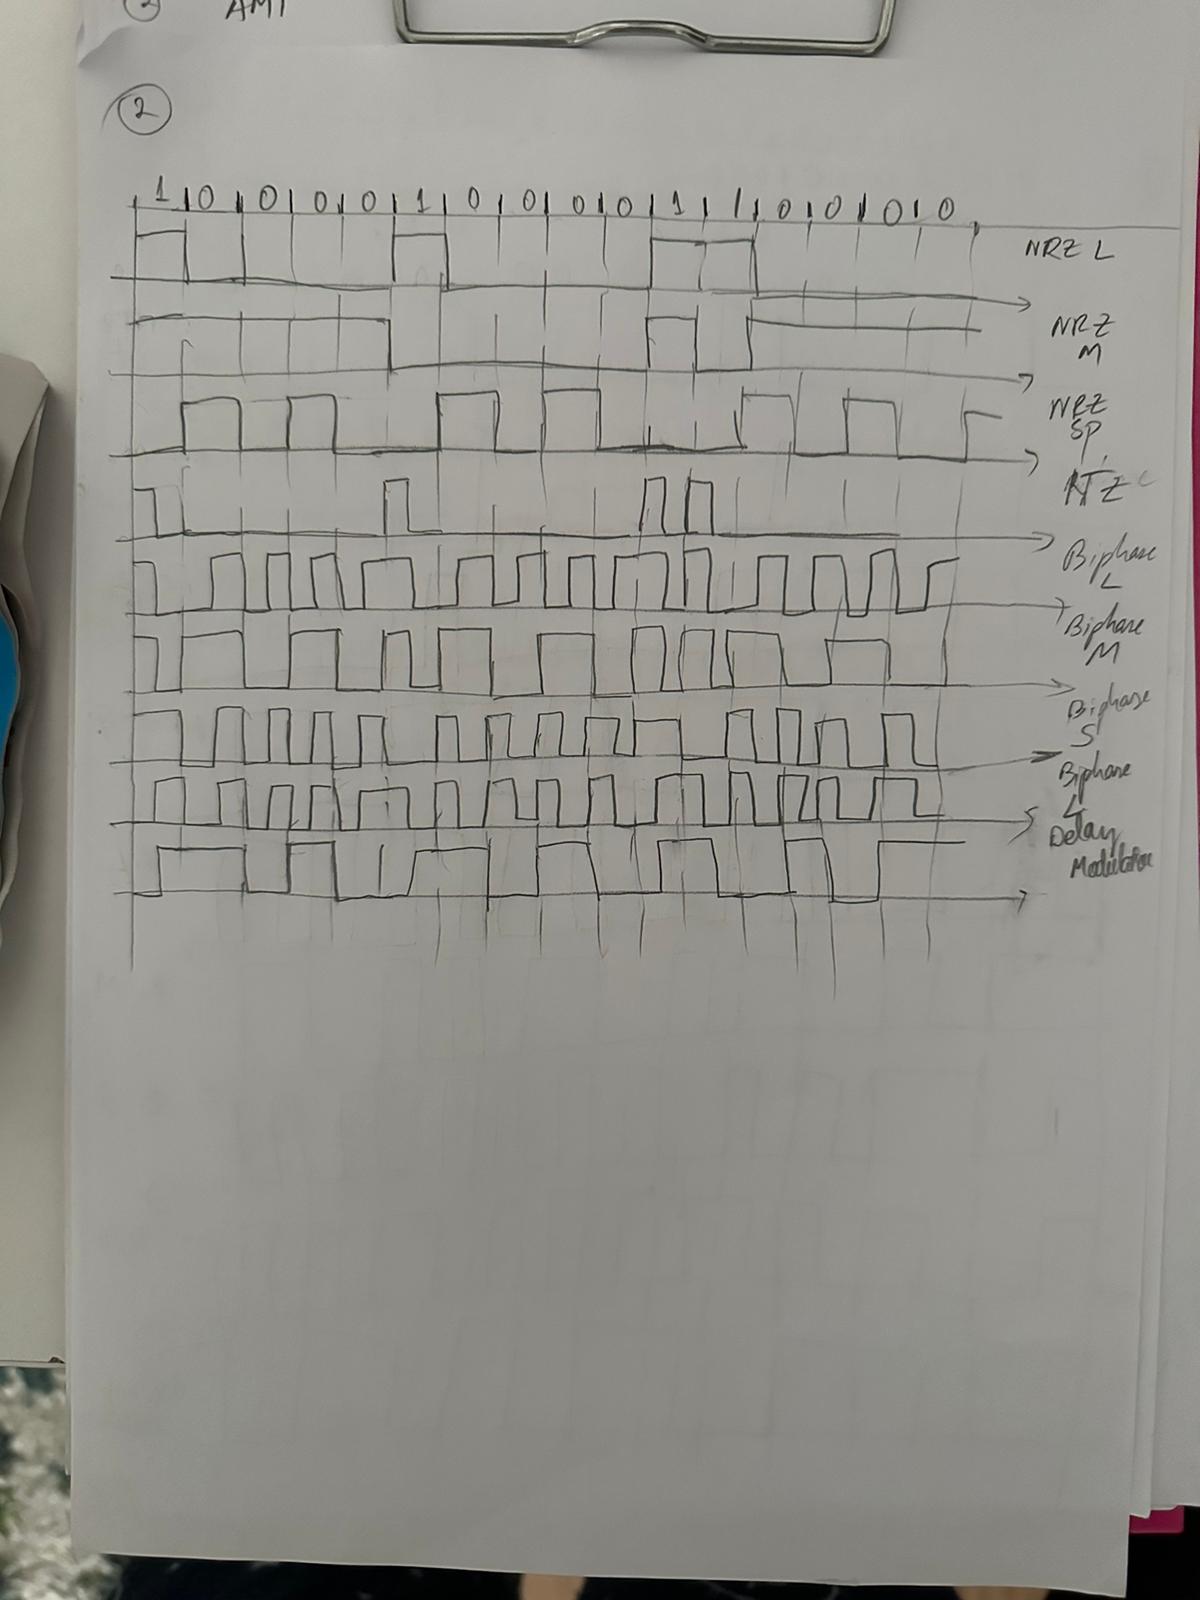 3 AMI
2
1 0 0 0 0 1 0 0 0 0 1 1 0 0 0 0
NRZ L
NRZ
M
NRZ
SP.
Biphase
L
Biphase
M
Biphase
S
Biphase
Delay